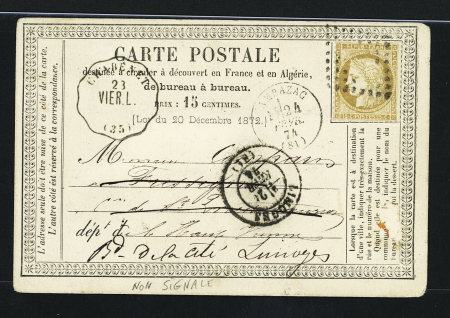 CARTE POSTALE
destinée à circuler à découvert en France et en Algérie,
de bureau à bureau.
PRIX : 15 CENTIMES.
(Loi du 20 Décembre 1872.)
23
VIER.L.
(35)
AMBAZAC
24
74
(81)
LIMOGES
Monsieur
dépt de la Haute Vienne
Bd de la Cité Limoges
L'adresse seule doit être mise de ce côté de la carte.
L'autre côté est réservé à la correspondance.
Lorsque la carte est à destination
d'une ville, indiquer très-exactement la
rue et le numéro de la maison.
Quand elle est destinée pour une
commune
indiquer le nom du
NON SIGNALE